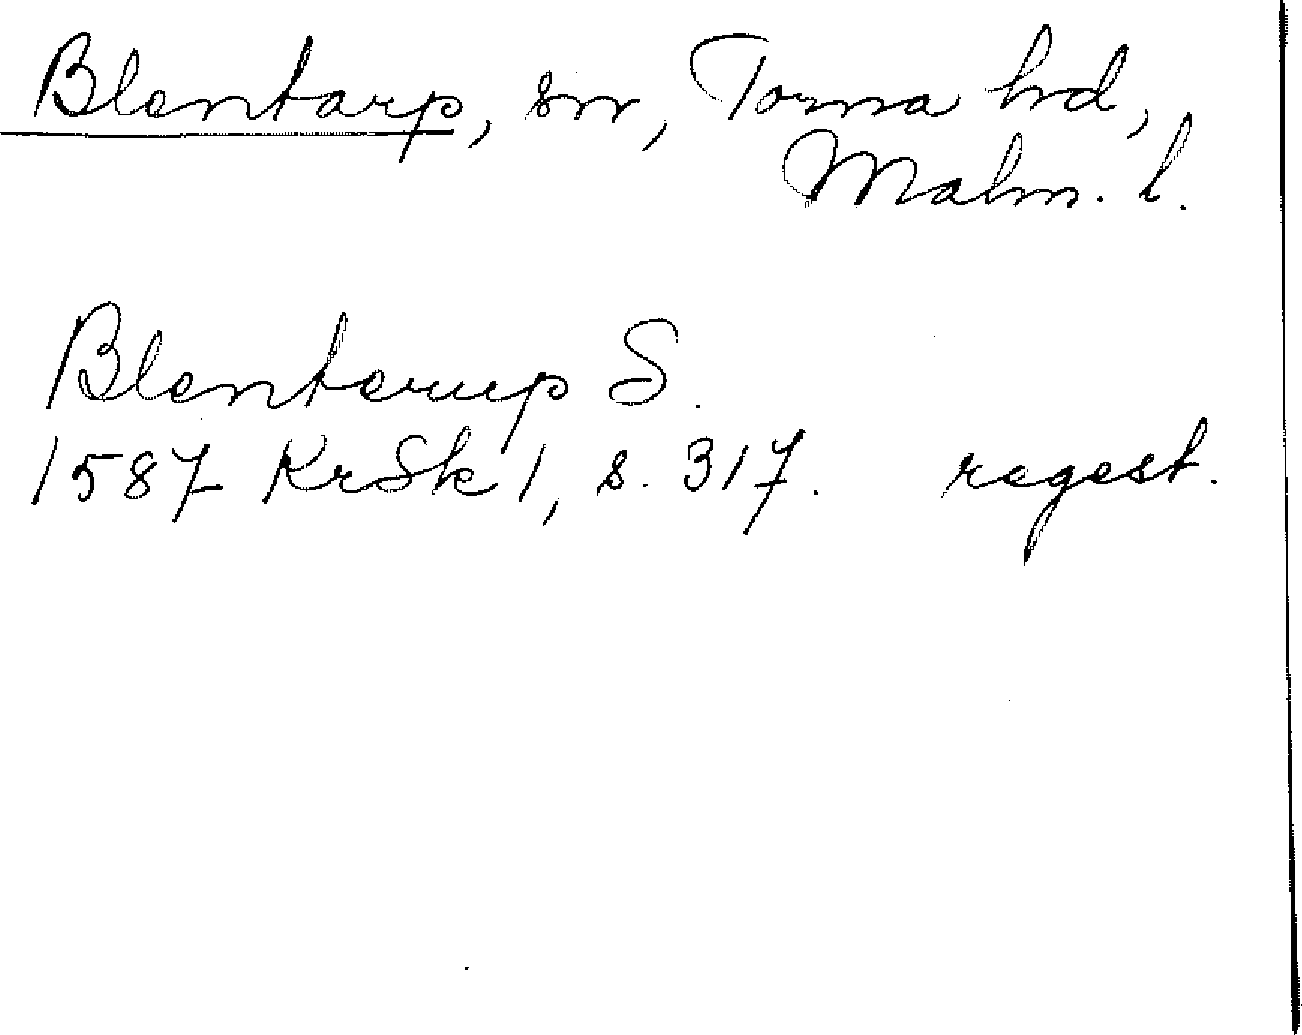 Blentarp, sn, Torna hd,
Malm. l.
Blenterup S.
1587 KrSk 1, s. 317. regest.